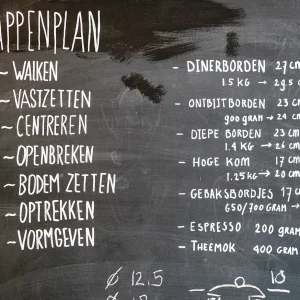 APPENPLAN
~ WALKEN
~ VASTZETTEN
~ CENTREREN
~ OPENBREKEN
~ BODEM ZETTEN
~ OPTREKKEN
~ VORMGEVEN
- DINERBORDEN 27 cm
1.5 KG → 29.5 c
- ONTBIJTBORDEN 23 cm
900 gram → 24 cm
- DIEPE BORDEN 23 cm
1.4 KG → 26 cm
- HOGE KOM 17 cm
1.25 KG → 20 cm
- GEBAKSBORDJES 17 c
650/700 gram →
- ESPRESSO 200 gram
- THEEMOK 400 gram
Ø 12.5
10